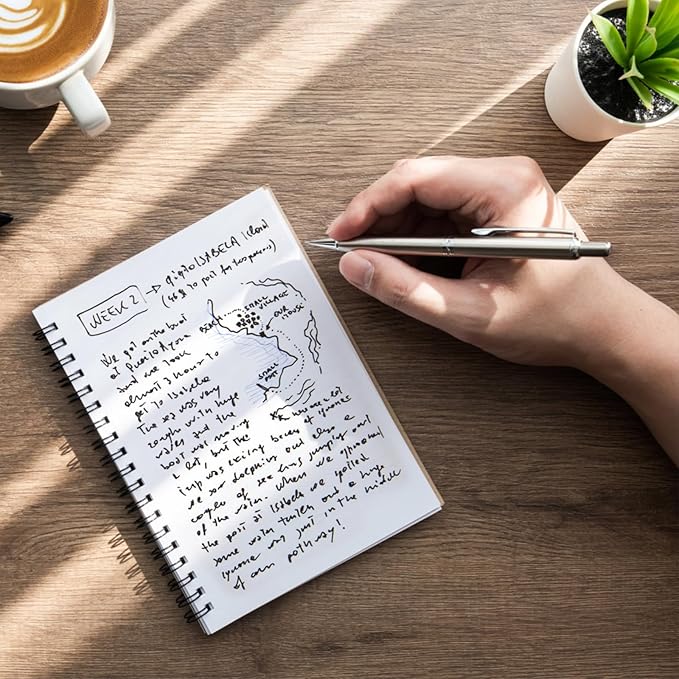 WEEK 2 → ISABELA island
(to port for two
BEACH
SMALL
VILLAGE
OUR
HOUSE
SMALL
PORT
We got on the boat
at Puerto Ayora
and we took
almost 2 hour to
get to Isabela
The sea was very
rough with huge
waves and the
boat was moving
a lot, but the
trip was
we saw dolphins and also a
couple of sea lions jumping out
of the water. When we approached
the port of Isabela we spotted
some water turtles and a huge
iguana just in the middle
of our pathway!